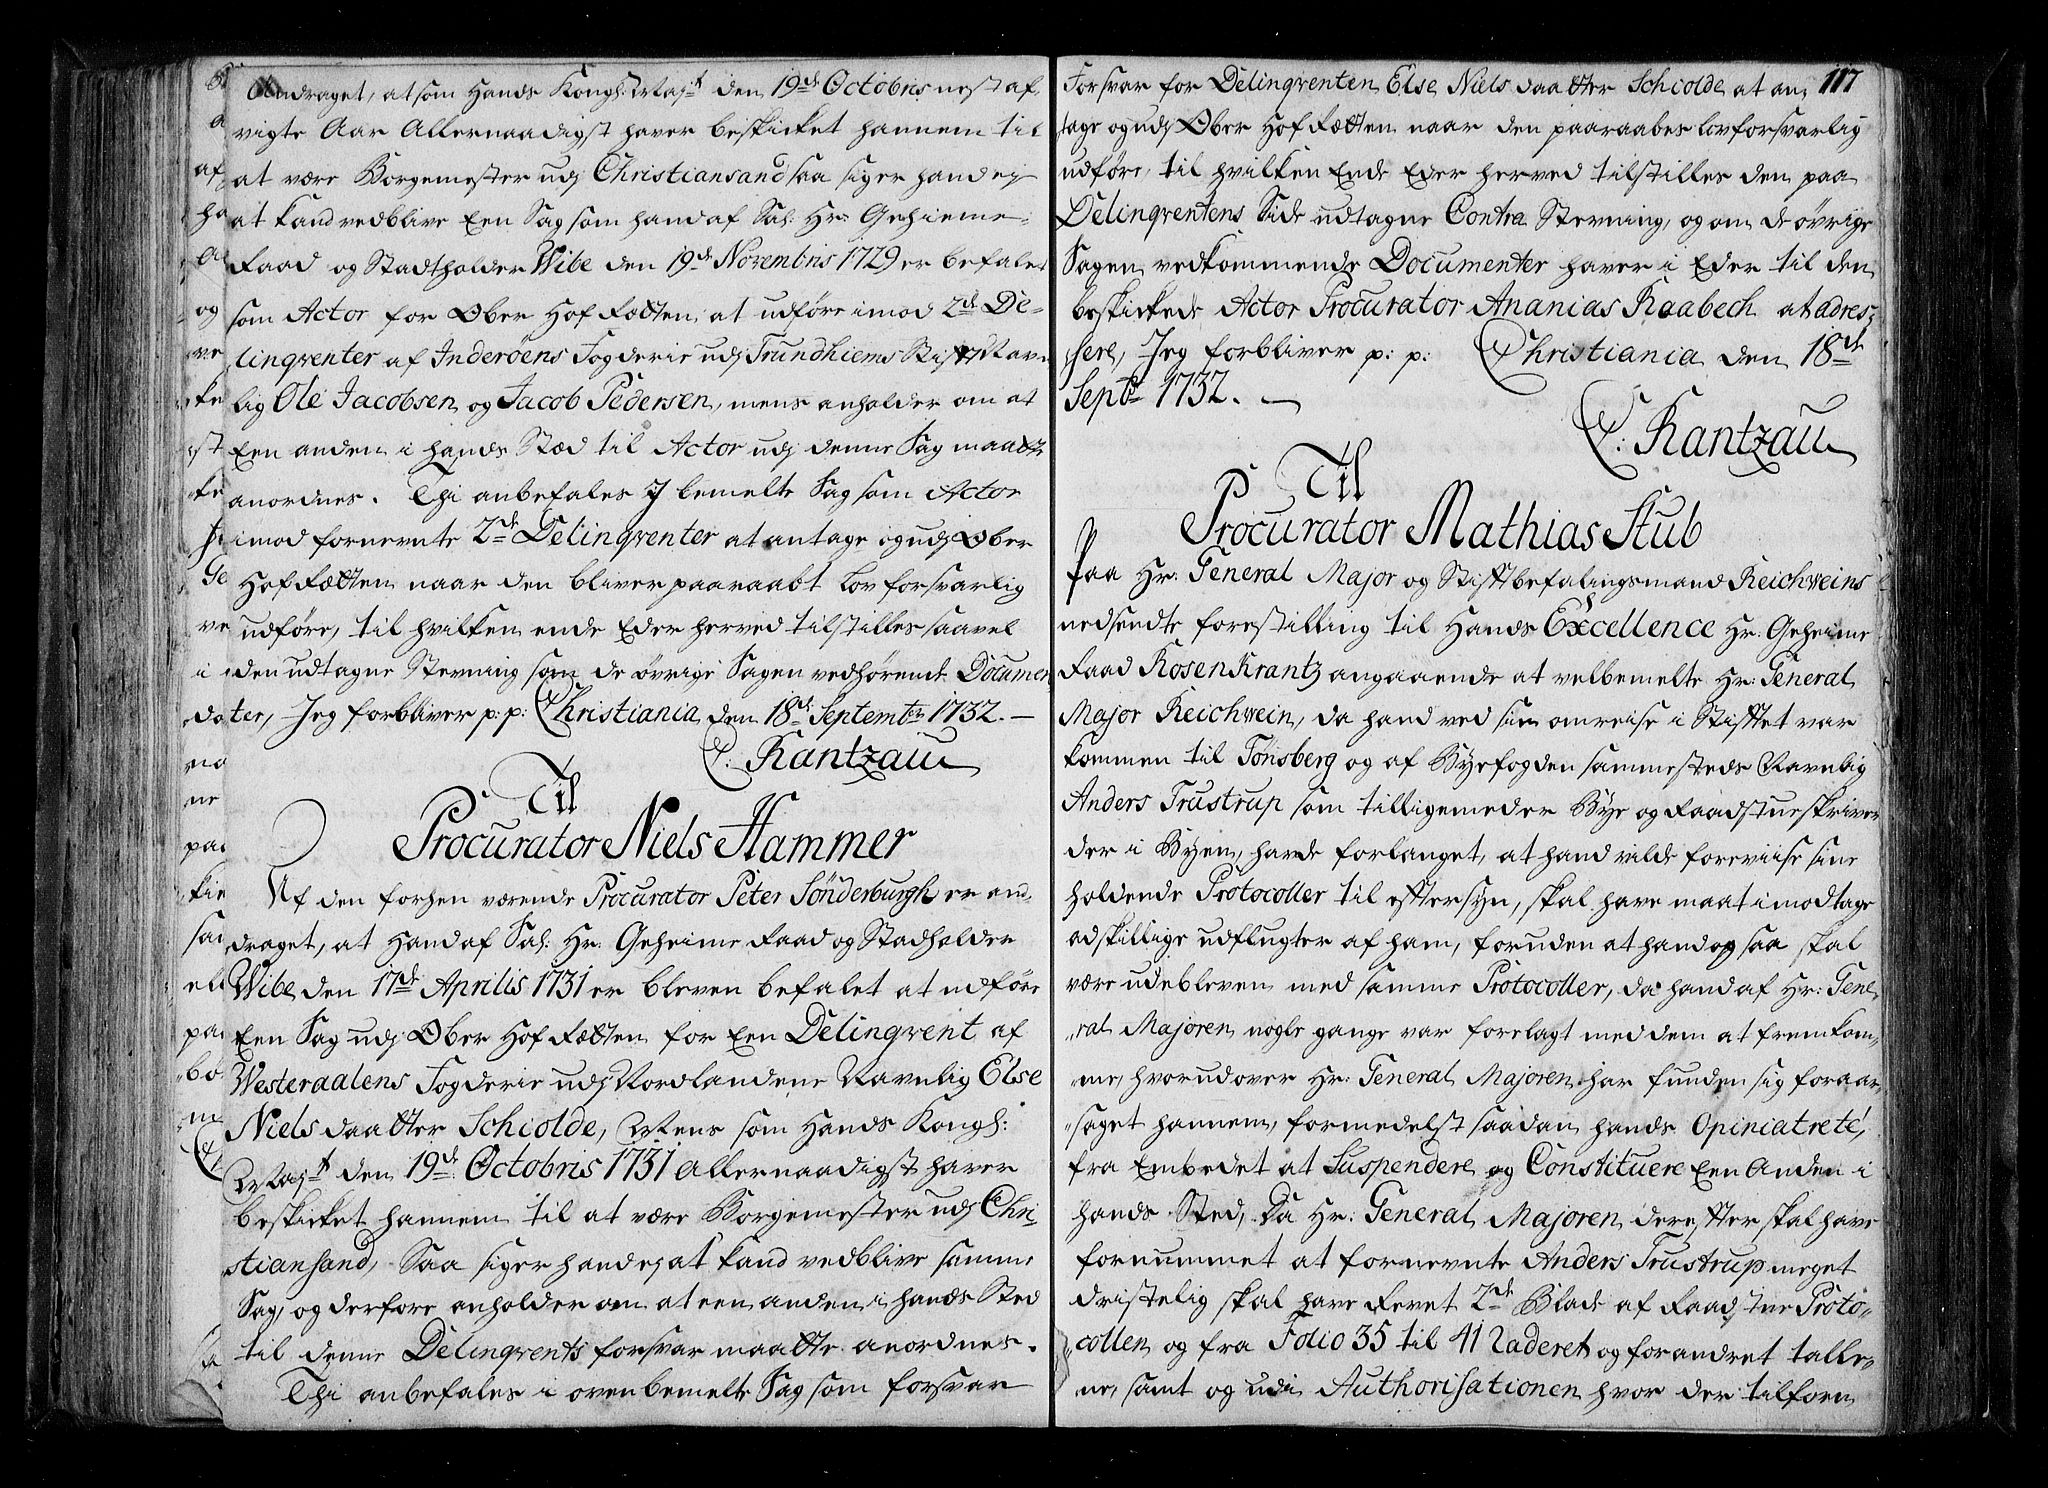 Andraget, at som Hands Kongl: Maj:t den 19de Octobris nest af„
vigte Aar Allernaadigst haver beskicket hannem til
at være Borgemester udj Christiansand saa siger hand ej
at kand vedblive Een Sag som hand af Sal: Hr: Gehieme„
Raad og Stadtholder Wibe den 19de Novembris 1729 er befalet
som Actor for Ober Hof Retten at udføre imod 2de De„
linqventer af Inderøens Fogderie udj Trundhiems Stift Navn„
lig Ole Jacobsen og Jacob Pedersen, mens anholder om at
Een anden i hands Stæd til Actor udj denne Sag maatte
anordnes. Thi anbefales I bemelte Sag som Actor
imod fornevnte 2de Delinqventer at antage og udj Ober
Hof Retten naar den bliver paaraabt Lovforsvarlig
udføre, til hvilken ende Eder herved tilstilles saavel
den udtagne Stevning som de øvrige Sagen vedhørende Documen„
ter, Jeg forbliver p: p: Christiania den 18de Septembr: 1732. —
C: Rantzau
Til
Procurator Niels Hammer
Af den forhen værende Procurator Peter Sønderburgh er an„
draget, at Hand af Sal: Hr: Geheime Raad og Stadholder
Wibe den 17de Aprilis 1731 er bleven befalet at udføre
Een Sag udj Ober Hof Retten for Een Delinqvent af
Westeraalens Fogderie udj Nordlandene Navnlig Else
Niels daatter Schiolde, Mens som Hands Kongl:
Maj:t den 19de Octobris 1731 Allernaadigst haver
beskicket hannem til at være Borgemester udj Chri„
stiansand, Saa siger hand ej at kand vedblive samme
Sag, og derfore anholder om at een anden i hands Sted
til denne Delinqvents forsvar maatte anordnes.
Thi anbefales i ovenbemelte Sag som forsvar
117
Forsvar for Delinqventen Else Niels daatter Schiolde at an„
tage og udj Ober Hof Retten naar den paaraabes lovforsvarlig
udføre, til hvilken Ende Eder herved tilstilles den paa
Delinqventens Side udtagne Contra Stevning, og om de øvrige
Sagen vedkommende Documenter haver i Eder til den
beskickede Actor Procurator Ananias Raabech at adres„
sere, Jeg forbliver p: p: Christiania den 18de
Septbr 1732. —
C: Rantzau
Til
Procurator Mathias Stub
Paa Hr: General Major og Stiftbefalingsmand Reichweins
nedsendte forestilling til Hands Excellence Hr: Geheime
Raad RosenKrantz angaaende at velbemelte Hr: General
Major Reichwein, da hand ved sin omreise i Stiftet var
kommen til Tønsberg og af Byefogden sammesteds Navnlig
Anders Trustrup som tilligemed er Bye og Raadstueskriver
der i Byen, harde forlanget, at hand vilde foreviise sine
holdende Protocoller til eftersyn, skal have maat imodtage
adskillige udflugter af ham, foruden at hand og saa skal
være udebleven med samme Protocoller, da hand af Hr: Gene„
ral Majoren nogle gange var forelagt med dem at fremkom„
me, hvorudover Hr: General Majoren har funden sig foraar„
saget hannem, formedelst saadan hands Opiniatreté,
fra Embedet at Suspendere og Constituere Een Anden i
hands Sted, Da Hr: General Majoren derefter skal have
fornummet at fornevnte Anders Trustrup meget
dristelig skal have Revet 2de Blade af Raadstue Proto„
collen og fra Folio 35 til 41 raderet og forandret talle„
ne, samt og udi Authorisationen hvor der tilforn